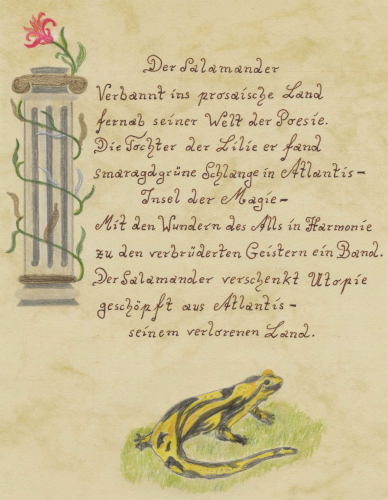 Der Salamander
Verbannt ins prosaische Land
fernab seiner Welt der Poesie.
Die Tochter der Lilie er fand
smaragdgrüne Schlange in Atlantis –
Insel der Magie –
Mit den Wundern des Alls in Harmonie
zu den verbrüderten Geistern ein Band.
Der Salamander verschenkt Utopie
geschöpft aus Atlantis –
seinem verlorenen Land.